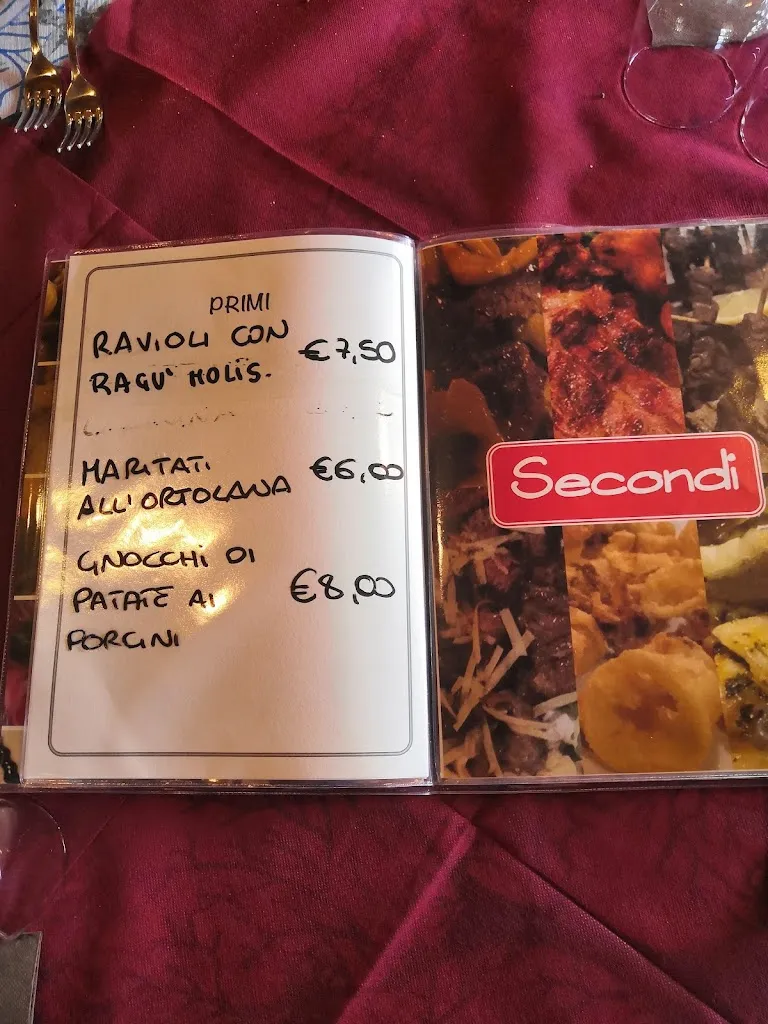 PRIMI
RAVIOLI CON
RAGU' MOLIS.
€7,50
MARITATI
ALL'ORTOLANA
€6,00
GNOCCHI DI
PATATE AI
PORCINI
€8,00
Secondi